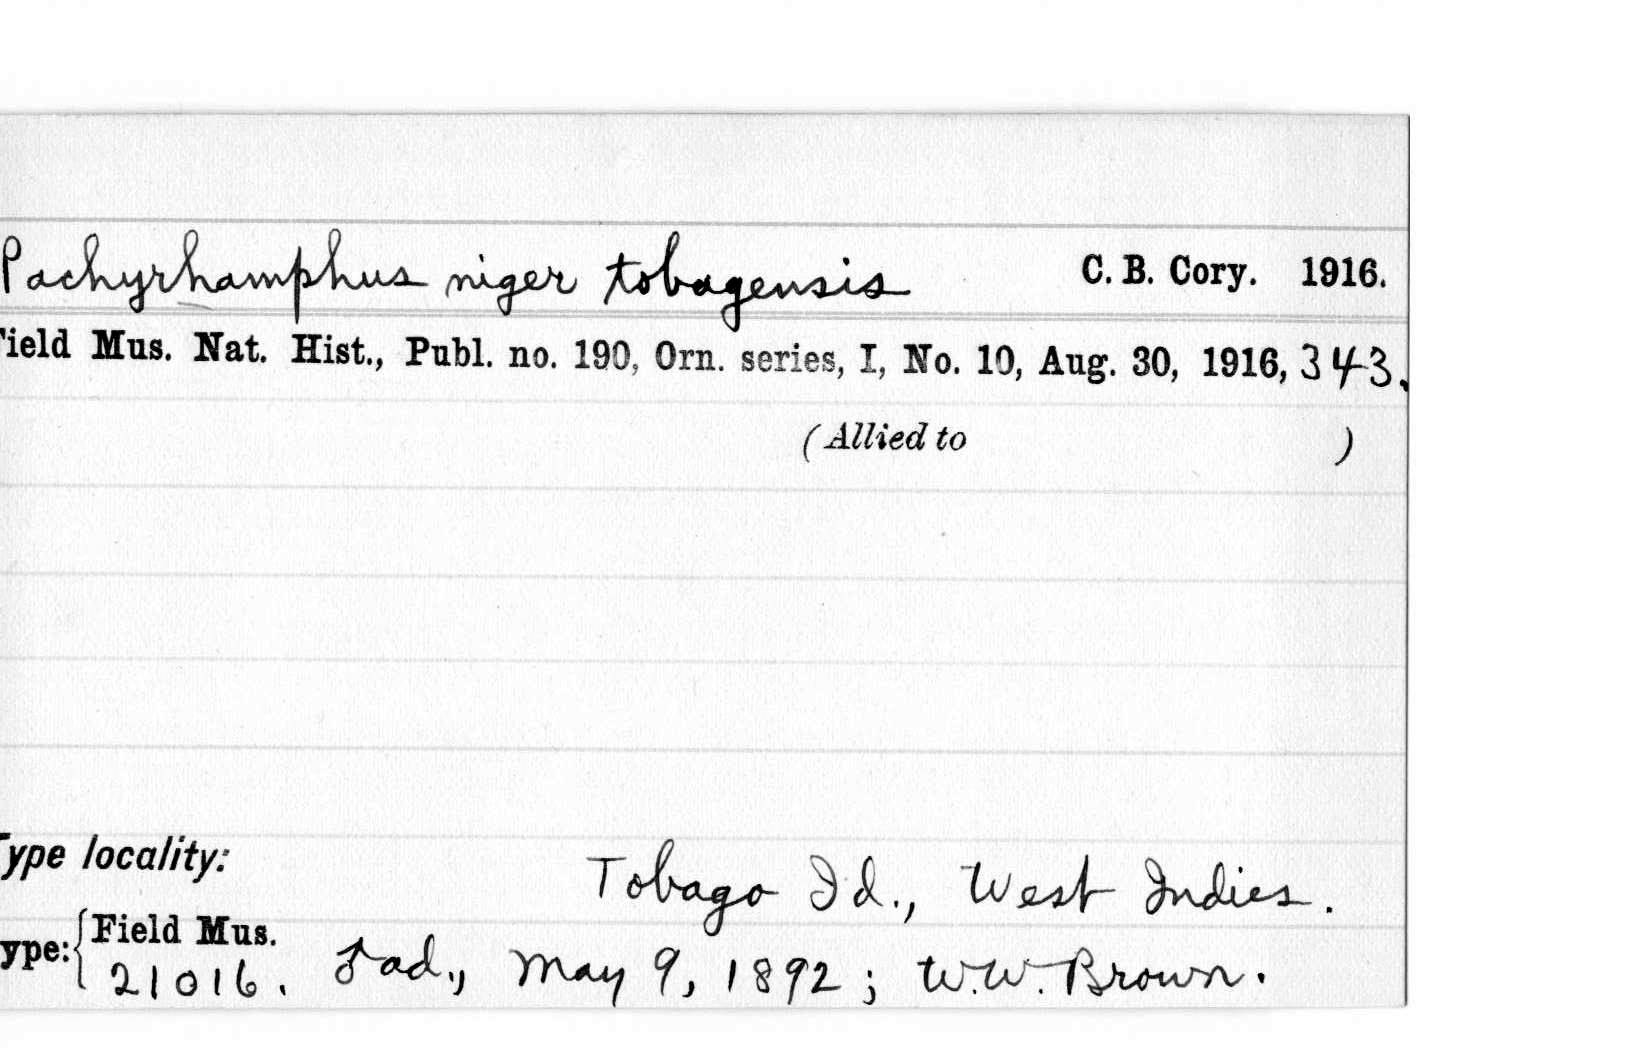 Pachyrhamphus niger tobagensis C. B. Cory. 1916.
ield Mus. Nat. Hist., Publ. no. 190, Orn. series, I, No. 10, Aug. 30, 1916, 343.
(Allied to )
Type locality:
Tobago Id., West Indies.
ype: { Field Mus.
21016. ♂ ad., May 9, 1892; W.W. Brown.